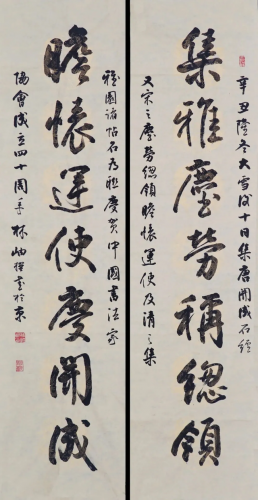 辛丑隆冬大雪後十日集唐開成石經
集雅塵勞稱緫領
又宋之塵勞緫領瞻懷運使及清之集
雅園諸帖名慶賀中國書法家
瞻懷運使慶開成
協會成立四十周年林岫撰書於京